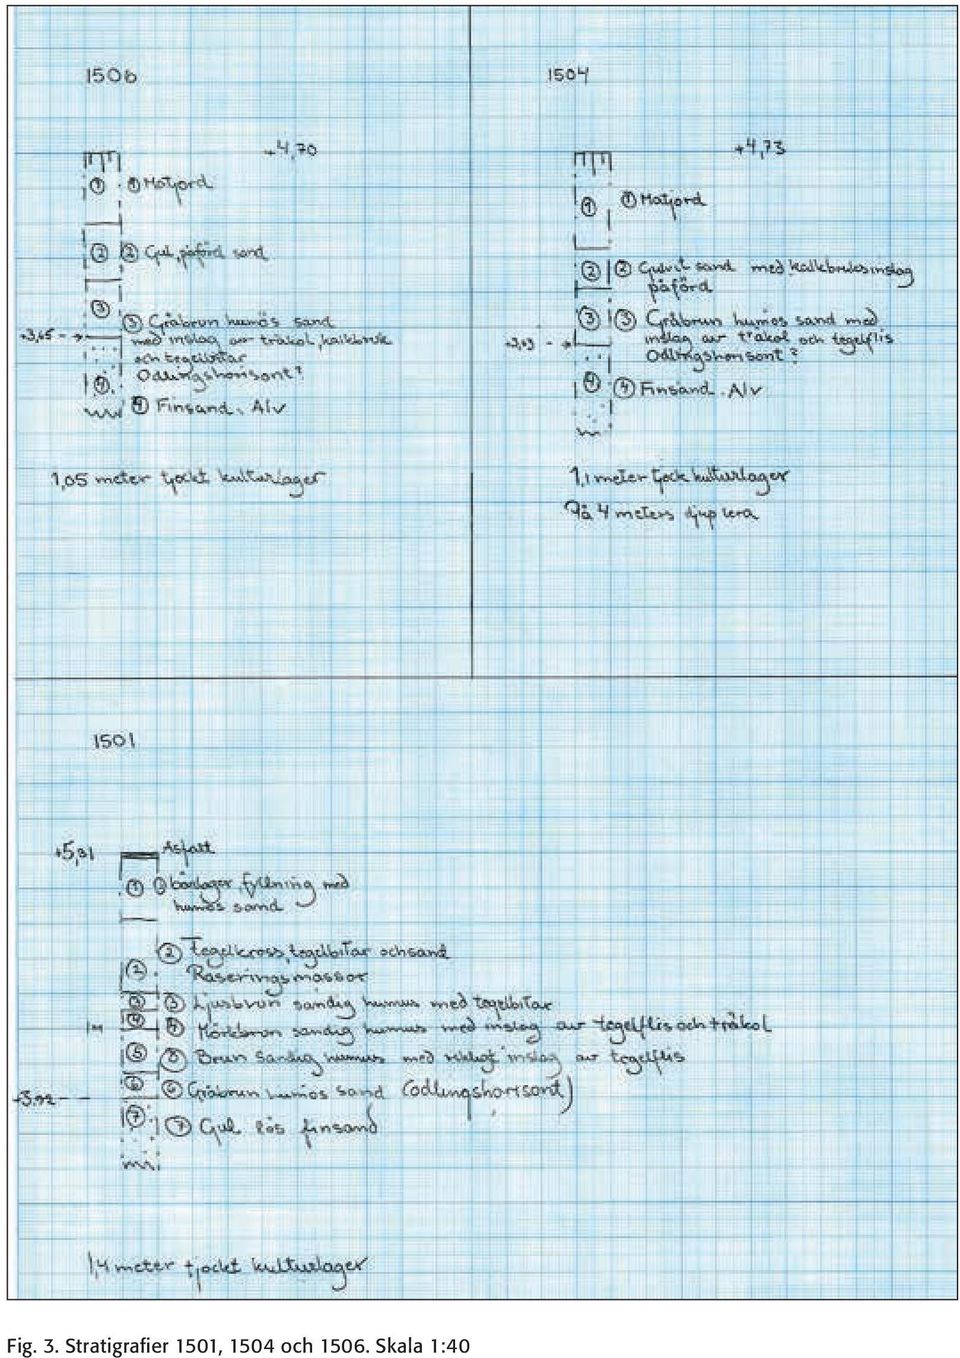 1506
+4,70
① Matjord
② Gul, påförd sand
③ Gråbrun humös sand
med inslag av träkol, kalkbruk
och tegelbitar
Odlingshorisont?
+3,65
④ Finsand. Alv
1,05 meter tjockt kulturlager
1504
+4,73
① Matjord
② Gulvit sand med kalkbruksinslag
påförd
③ Gråbrun humös sand med
inslag av träkol och tegelflis
Odlingshorisont?
④ Finsand. Alv
1,1 meter tjock kulturlager
På 4 meters djup lera
1501
+5,31
Asfalt
① bärlager, fyllning med
humös sand
② Tegelkross, tegelbitar och sand
Raseringsmassor
③ Ljusbrun sandig humus med tegelbitar
1m
④ Mörkbrun sandig humus med inslag av tegelflis och träkol
⑤ Brun sandig humus med rikligt inslag av tegelflis
⑥ Gråbrun humös sand (odlingshorisont)
+3,92
⑦ Gul lös finsand
1,4 meter tjockt kulturlager
Fig. 3. Stratigrafier 1501, 1504 och 1506. Skala 1:40